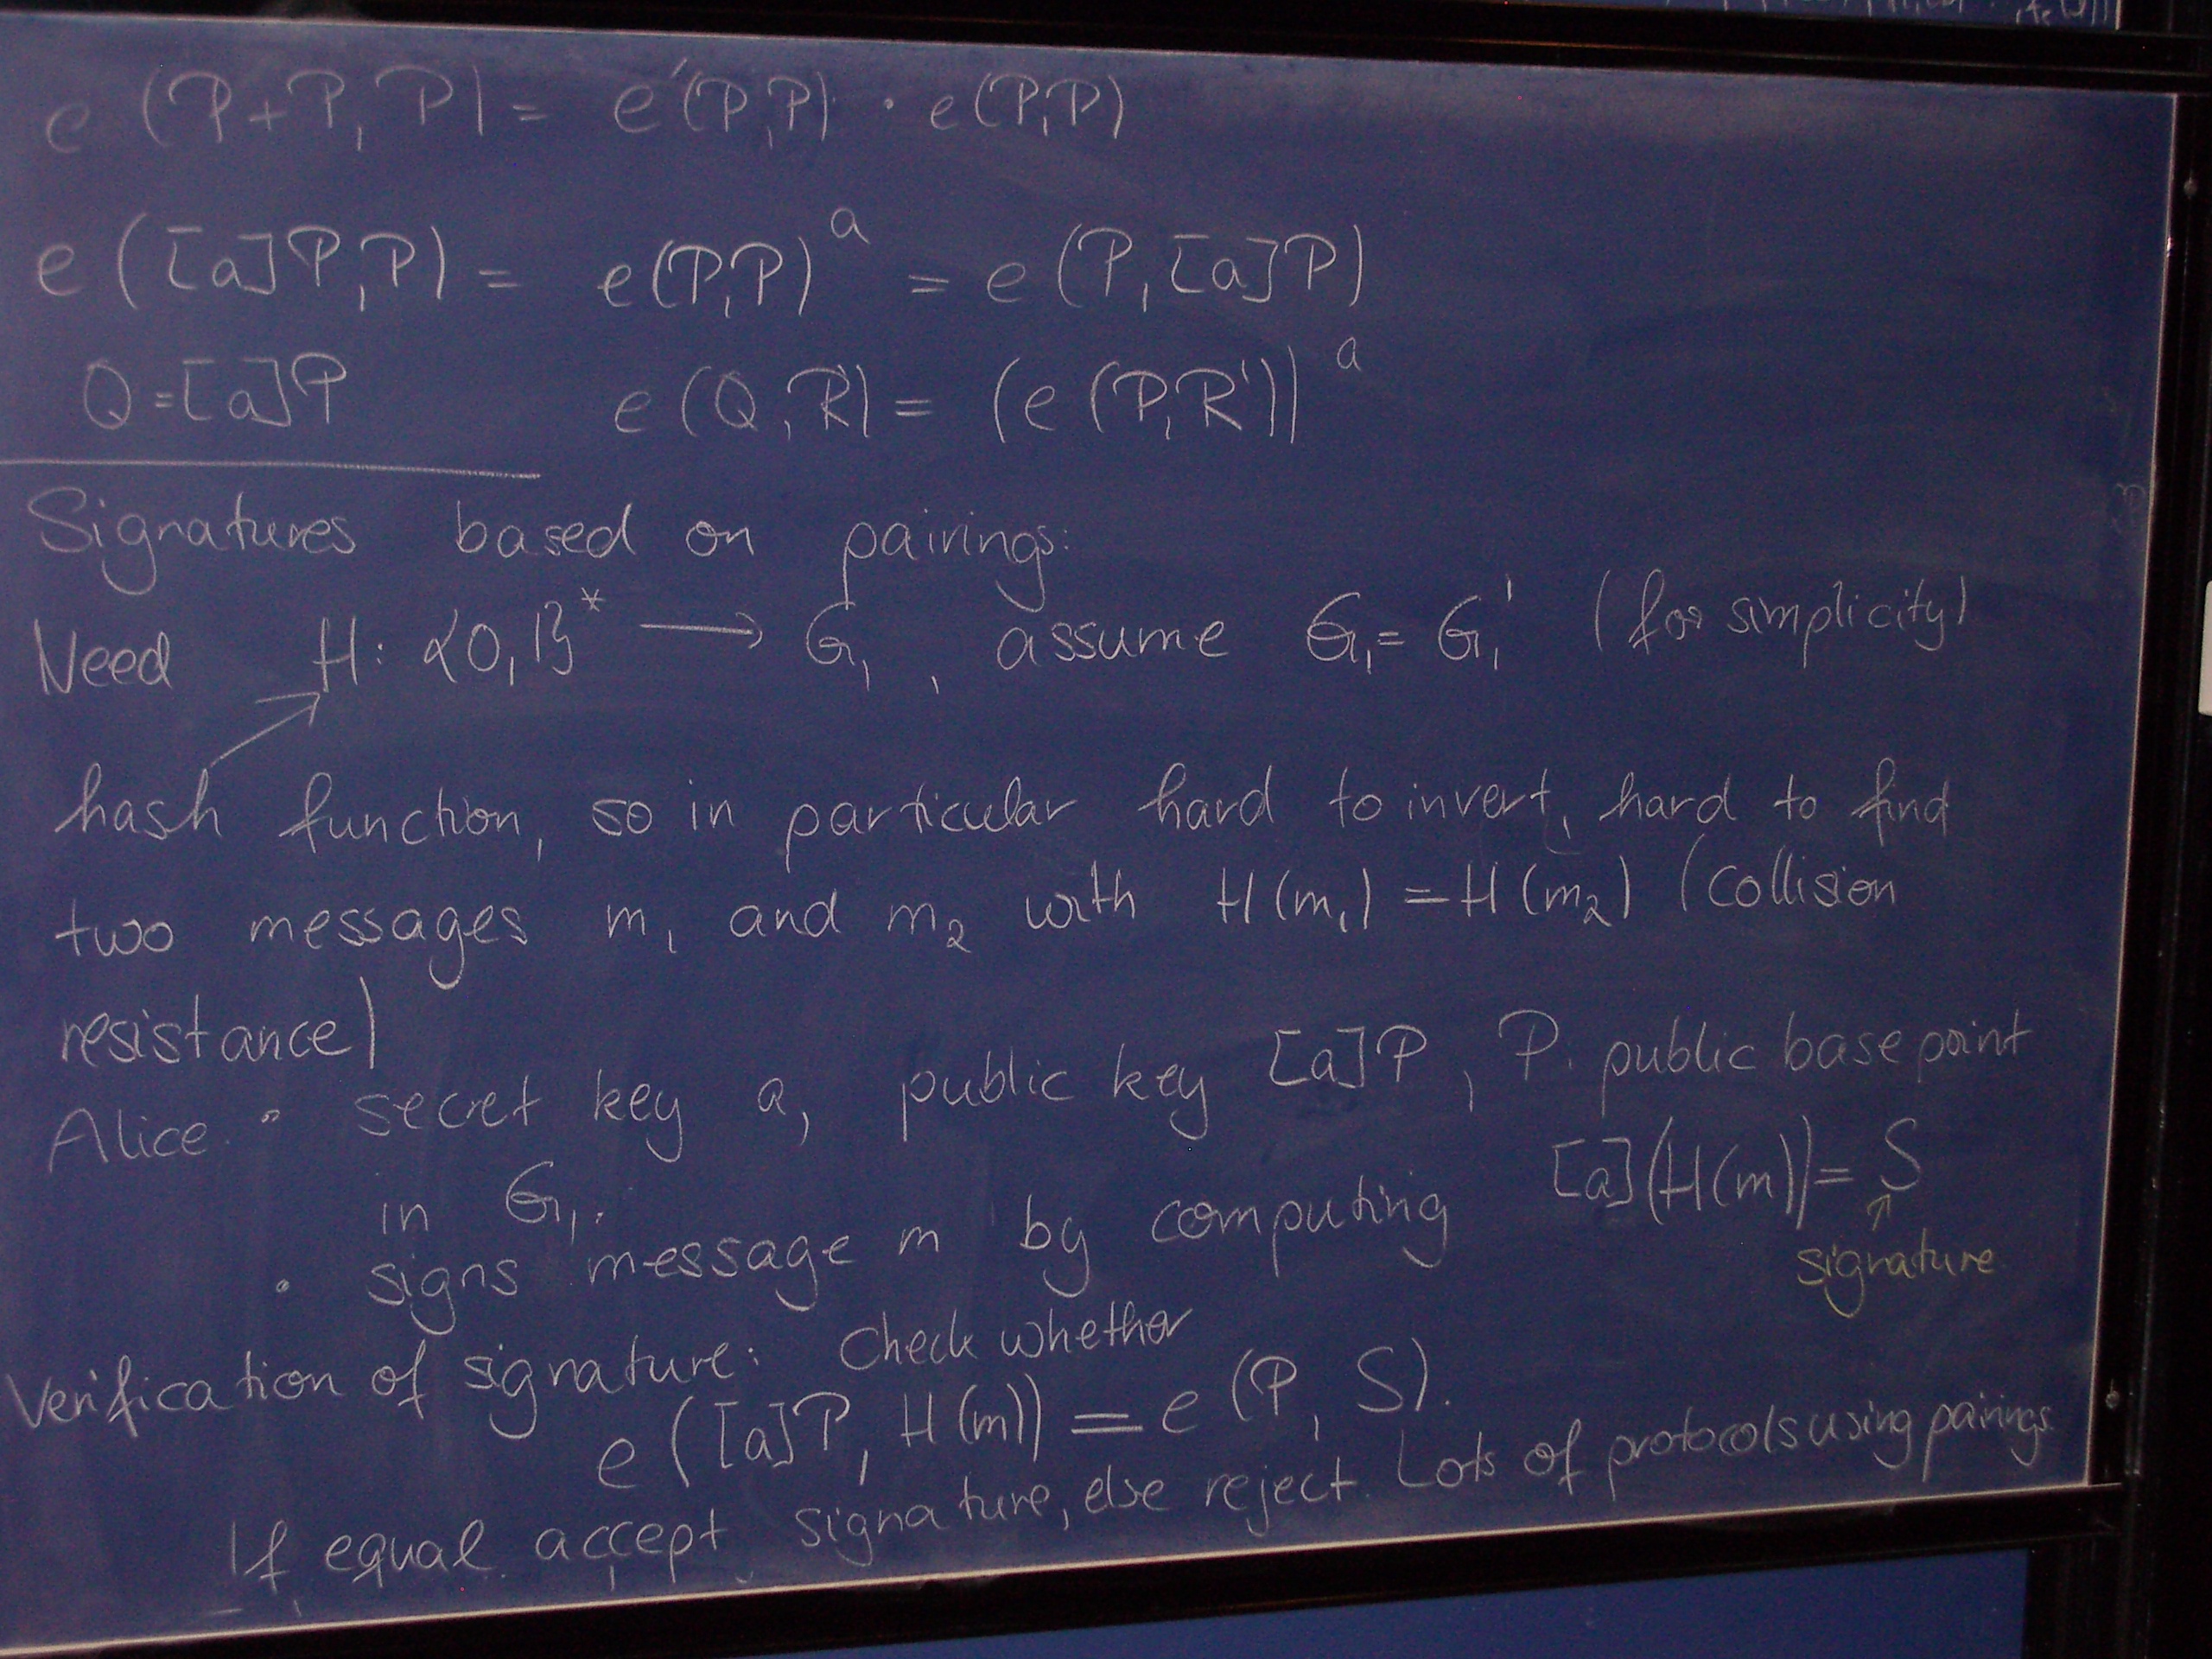 e (P+P, P) = e(P,P) · e(P,P)
e ([a]P,P) = e(P,P)^a = e (P, [a]P)
Q = [a]P e (Q, R') = (e (P,R'))^a
Signatures based on pairings:
Need H: {0,1}* → G₁, assume G₁ = G₁' (for simplicity)
hash function, so in particular hard to invert, hard to find
two messages m₁ and m₂ with H(m₁) = H(m₂) (collision
resistance)
Alice: • secret key a, public key [a]P, P: public base point
in G₁.
• signs message m by computing [a](H(m)) = S
↑
signature
Verification of signature: Check whether
e ([a]P, H(m)) = e (P, S).
If equal accept signature, else reject. Lots of protocols using pairings.